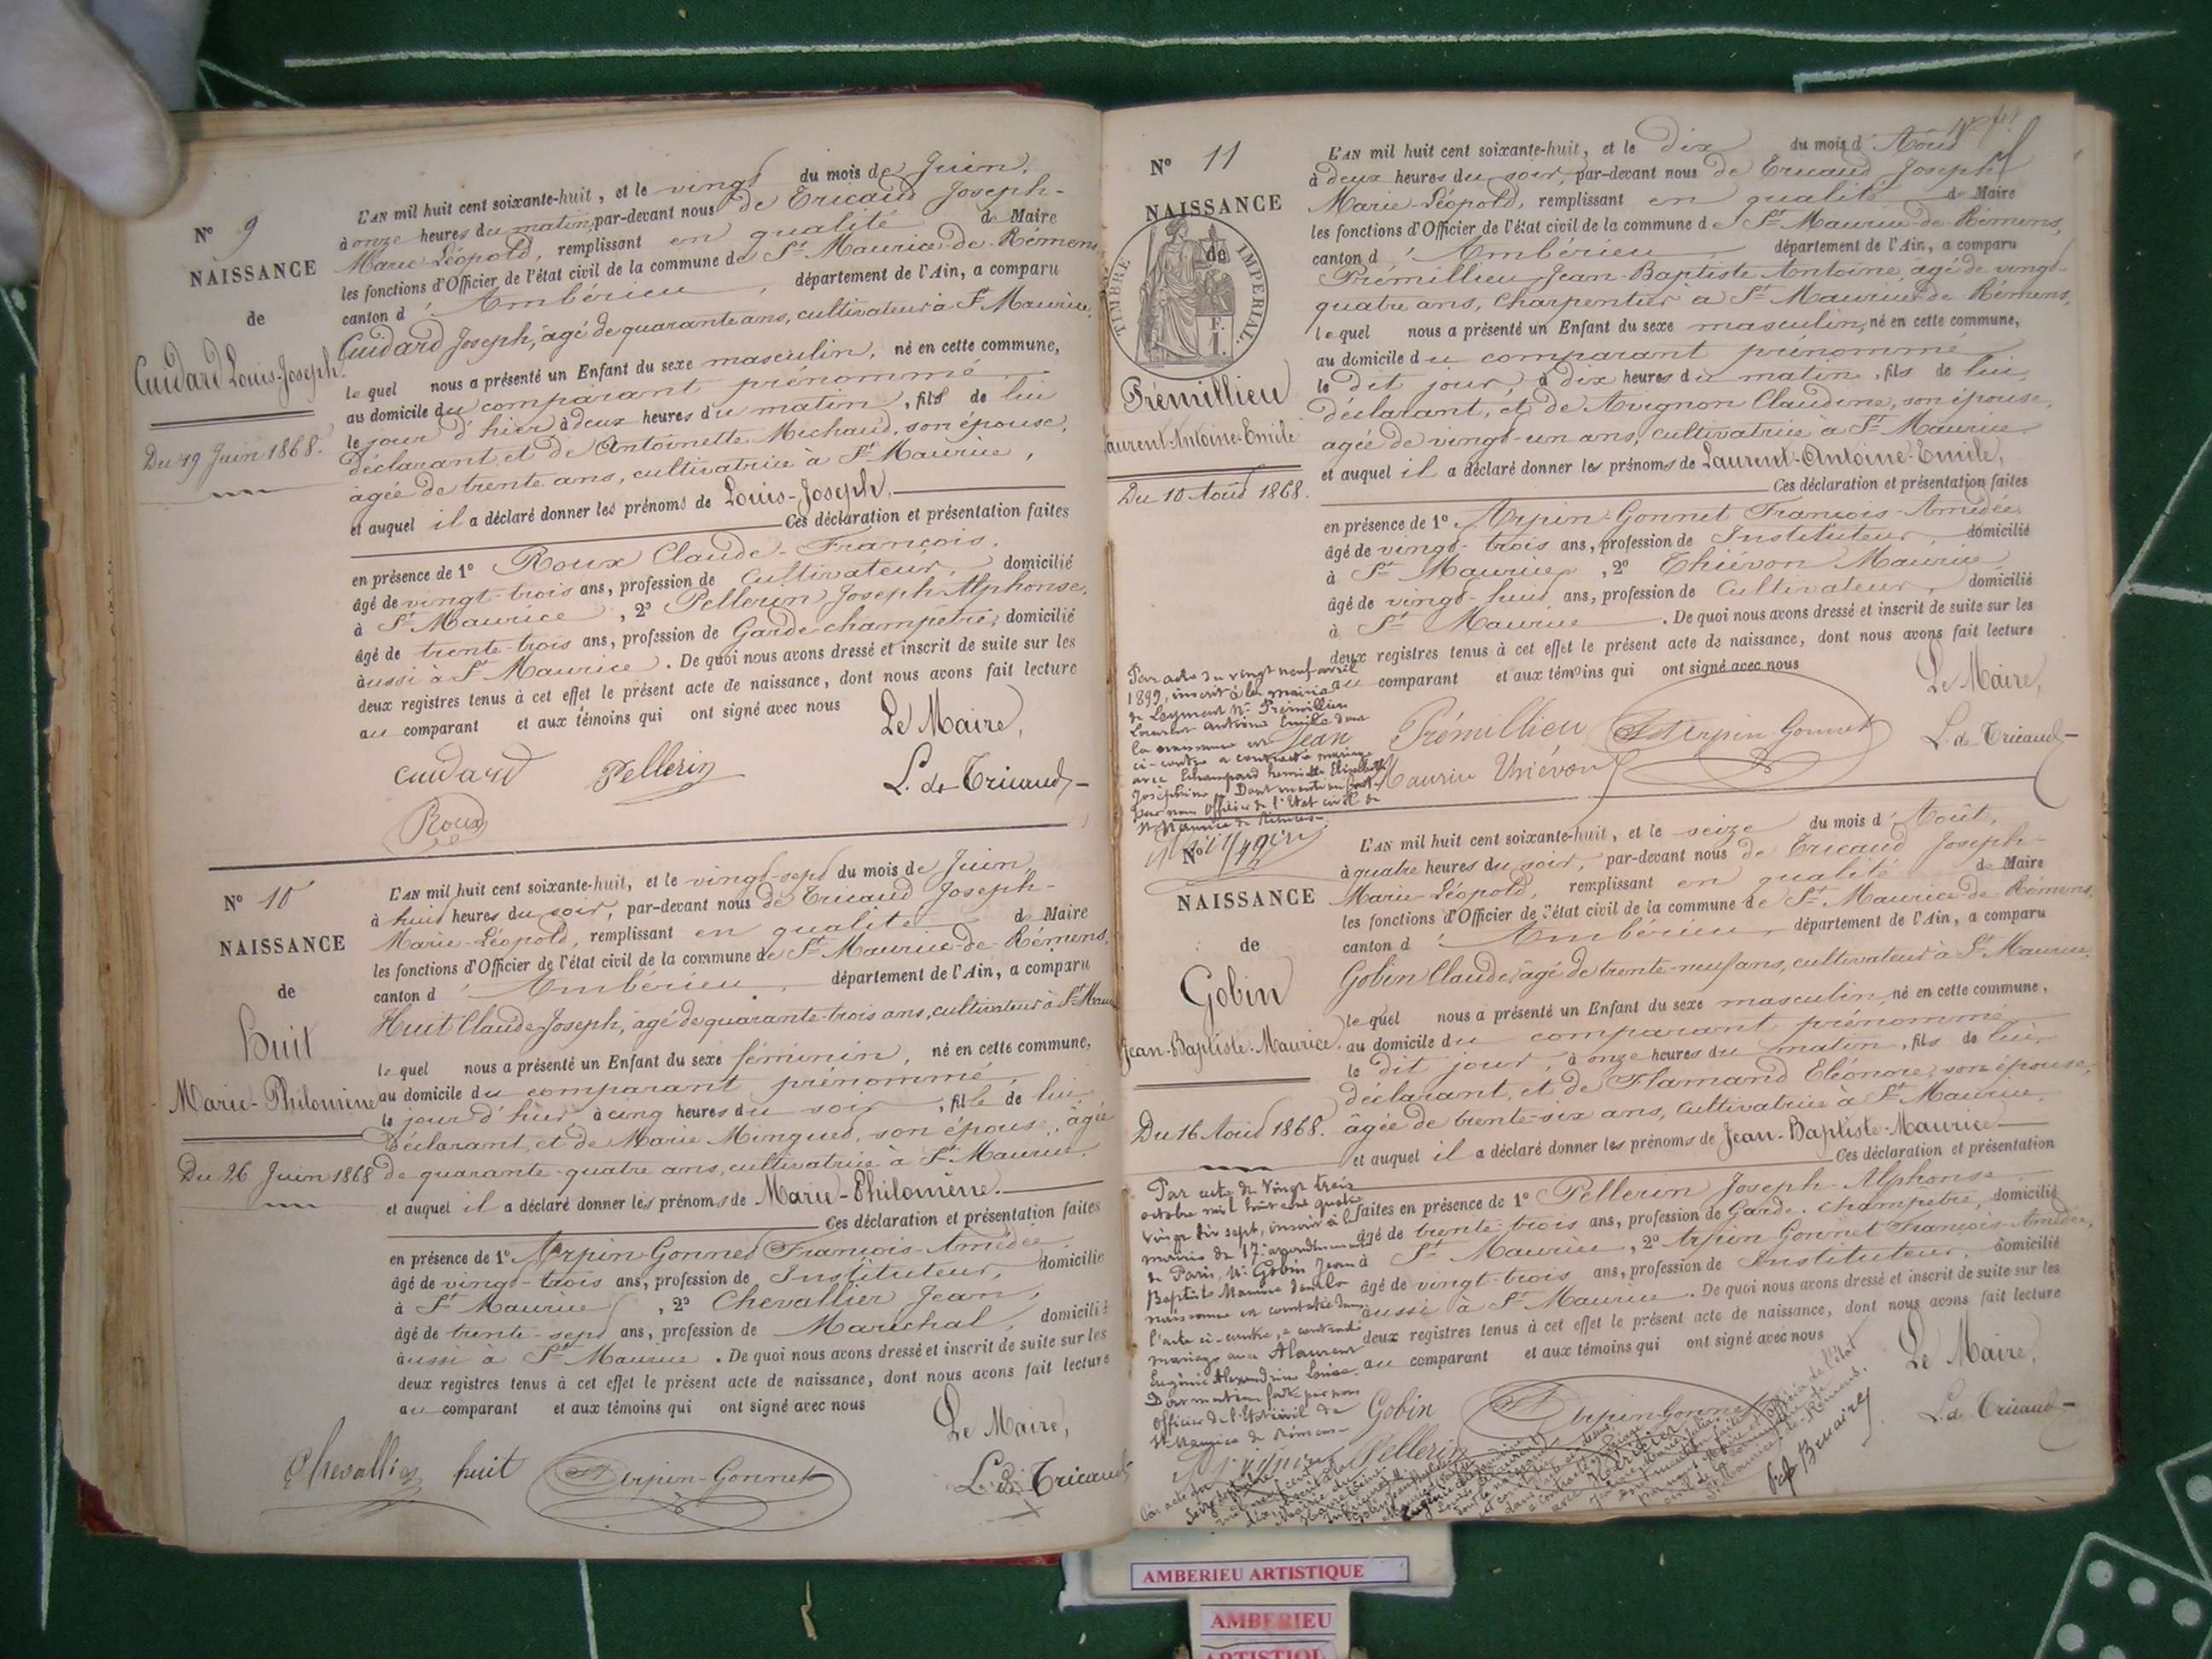 N° 9
NAISSANCE
de
Cuidard Louis-Joseph.
Du 19 Juin 1868.
L'AN mil huit cent soixante-huit, et le vingt du mois de Juin,
à onze heures du matin, par-devant nous de Tricaud Joseph-
Marie-Léopold, remplissant en qualité de Maire
les fonctions d'Officier de l'état civil de la commune de St Maurice-de-Rémens,
canton d'Ambérieu, département de l'Ain, a comparu
Cuidard Joseph, âgé de quarante ans, cultivateur à St Maurice,
lequel nous a présenté un Enfant du sexe masculin, né en cette commune,
au domicile du comparant prénommé
le jour d'hier, à deux heures du matin, fils de lui
déclarant et de Antoinette Michaud, son épouse,
âgée de trente ans, cultivatrice à St Maurice,
et auquel il a déclaré donner les prénoms de Louis-Joseph.
Ces déclaration et présentation faites
en présence de 1° Roux Claude-François,
âgé de vingt-trois ans, profession de Cultivateur, domicilié
à St Maurice, 2° Pellerin Joseph Alphonse,
âgé de trente-trois ans, profession de Garde champêtre, domicilié
aussi à St Maurice. De quoi nous avons dressé et inscrit de suite sur les
deux registres tenus à cet effet le présent acte de naissance, dont nous avons fait lecture
au comparant et aux témoins qui ont signé avec nous
Le Maire,
Cuidard Pellerin L. de Tricaud
Roux
N° 10
NAISSANCE
de
Huit
Marie-Philomène
Du 26 Juin 1868
L'AN mil huit cent soixante-huit, et le vingt-sept du mois de Juin,
à huit heures du soir, par-devant nous de Tricaud Joseph-
Marie-Léopold, remplissant en qualité de Maire
les fonctions d'Officier de l'état civil de la commune de St Maurice-de-Rémens,
canton d'Ambérieu, département de l'Ain, a comparu
Huit Claude-Joseph, âgé de quarante-trois ans, cultivateur à St Maurice
lequel nous a présenté un Enfant du sexe féminin, né en cette commune,
au domicile du comparant prénommé,
le jour d'hier, à cinq heures du soir, fille de lui,
déclarant, et de Marie Minguet, son épouse, âgée
de quarante-quatre ans, cultivatrice à St Maurice,
et auquel il a déclaré donner les prénoms de Marie-Philomène.
Ces déclaration et présentation faites
en présence de 1° Arpin-Gonnet François-Amédée
âgé de vingt-trois ans, profession de Instituteur, domicilié
à St Maurice, 2° Chevallier Jean,
âgé de trente-sept ans, profession de Maréchal, domicilié
aussi à St Maurice. De quoi nous avons dressé et inscrit de suite sur les
deux registres tenus à cet effet le présent acte de naissance, dont nous avons fait lecture
au comparant et aux témoins qui ont signé avec nous
Le Maire,
Chevallier huit Arpin-Gonnet L. de Tricaud
N° 11
NAISSANCE
de
TIMBRE IMPERIAL
Prémillieu
Laurent-Antoine-Emile
Du 10 Aout 1868.
L'AN mil huit cent soixante-huit, et le dix du mois d'Aout
à deux heures du soir, par-devant nous de Tricaud Joseph
Marie-Léopold, remplissant en qualité de Maire
les fonctions d'Officier de l'état civil de la commune de St Maurice-de-Rémens,
canton d'Ambérieu, département de l'Ain, a comparu
Prémillieu Jean-Baptiste Antoine, âgé de vingt-
quatre ans, Charpentier à St Maurice de Rémens,
lequel nous a présenté un Enfant du sexe masculin, né en cette commune,
au domicile du comparant prénommé
le dit jour, à dix heures du matin, fils de lui
déclarant, et de Avignon Claudine, son épouse,
âgée de vingt-un ans, cultivatrice à St Maurice
et auquel il a déclaré donner les prénoms de Laurent-Antoine-Emile,
Ces déclaration et présentation faites
en présence de 1° Arpin-Gonnet François-Amédée
âgé de vingt-trois ans, profession de Instituteur, domicilié
à St Maurice, 2° Thiévon Maurice
âgé de vingt-huit ans, profession de Cultivateur, domicilié
à St Maurice. De quoi nous avons dressé et inscrit de suite sur les
deux registres tenus à cet effet le présent acte de naissance, dont nous avons fait lecture
au comparant et aux témoins qui ont signé avec nous
Le Maire,
Jean Prémillieu Arpin-Gonnet L. de Tricaud
Maurice Thiévon
Par acte du vingt neuf avril
1899, inscrit à la mairie
de Leyment Mr Prémillieu
Laurent Antoine Emile dont
la naissance est
ci-contre a contracté mariage
avec Henriette Elisabeth
Joséphine. Dont mention faite
par nous officier de l'Etat civil de
St Maurice de Rémens.
N°
NAISSANCE
de
Gobin
Jean-Baptiste-Maurice.
Du 16 Aout 1868.
L'AN mil huit cent soixante-huit, et le seize du mois d'Août,
à quatre heures du soir, par-devant nous de Tricaud Joseph-
Marie-Léopold, remplissant en qualité de Maire
les fonctions d'Officier de l'état civil de la commune de St Maurice-de-Rémens,
canton d'Ambérieu, département de l'Ain, a comparu
Gobin Claude, âgé de trente-neuf ans, cultivateur à St Maurice,
lequel nous a présenté un Enfant du sexe masculin, né en cette commune,
au domicile du comparant prénommé
le dit jour, à onze heures du matin, fils de lui,
déclarant, et de Flamand Eléonore, son épouse,
âgée de trente-six ans, cultivatrice à St Maurice,
et auquel il a déclaré donner les prénoms de Jean-Baptiste-Maurice
Ces déclaration et présentation
faites en présence de 1° Pellerin Joseph-Alphonse
âgé de trente-trois ans, profession de Garde-champêtre, domicilié
à St Maurice, 2° Arpin-Gonnet François-Amédée,
âgé de vingt-trois ans, profession de Instituteur, domicilié
aussi à St Maurice. De quoi nous avons dressé et inscrit de suite sur les
deux registres tenus à cet effet le présent acte de naissance, dont nous avons fait lecture
au comparant et aux témoins qui ont signé avec nous
Le Maire,
Gobin Arpin-Gonnet L. de Tricaud
Pellerin
Par acte du vingt trois
octobre mil huit cent quatre
vingt dix sept, inscrit à la
mairie du 17e arrondissement
de Paris, Mr Gobin Jean
Baptiste Maurice dont la
naissance est constatée dans
l'acte ci-contre, a contracté
mariage avec Alaurent
Eugénie Alexandrine Louise
Dont mention faite par nous
officier de l'Etat civil de
St Maurice de Rémens
AMBERIEU ARTISTIQUE
AMBERIEU
ARTISTIQUE